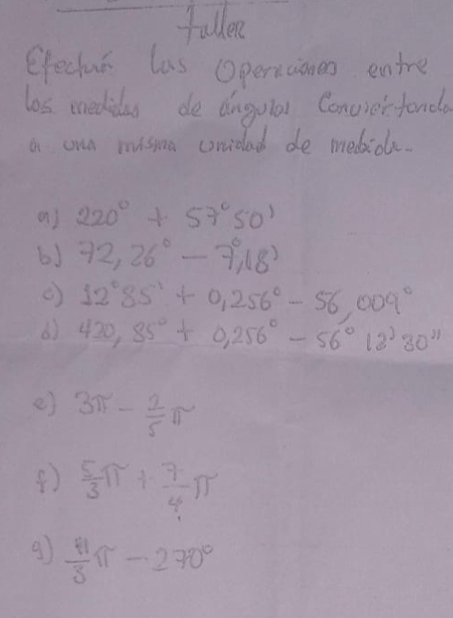 Taller
Efectuá las Operaciones entre
las medidas de ángulos Conviertondo
a una misma unidad de medida.
a) 220° + 57°50'
b) 72,26° - 7°,18'
c) 12°85' + 0,256° - 56,009°
d) 420,85° + 0,256° - 56° 12' 30"
e) 3π - 2/5 π
f) 5/3 π + 7/4 π
g) π - 270°